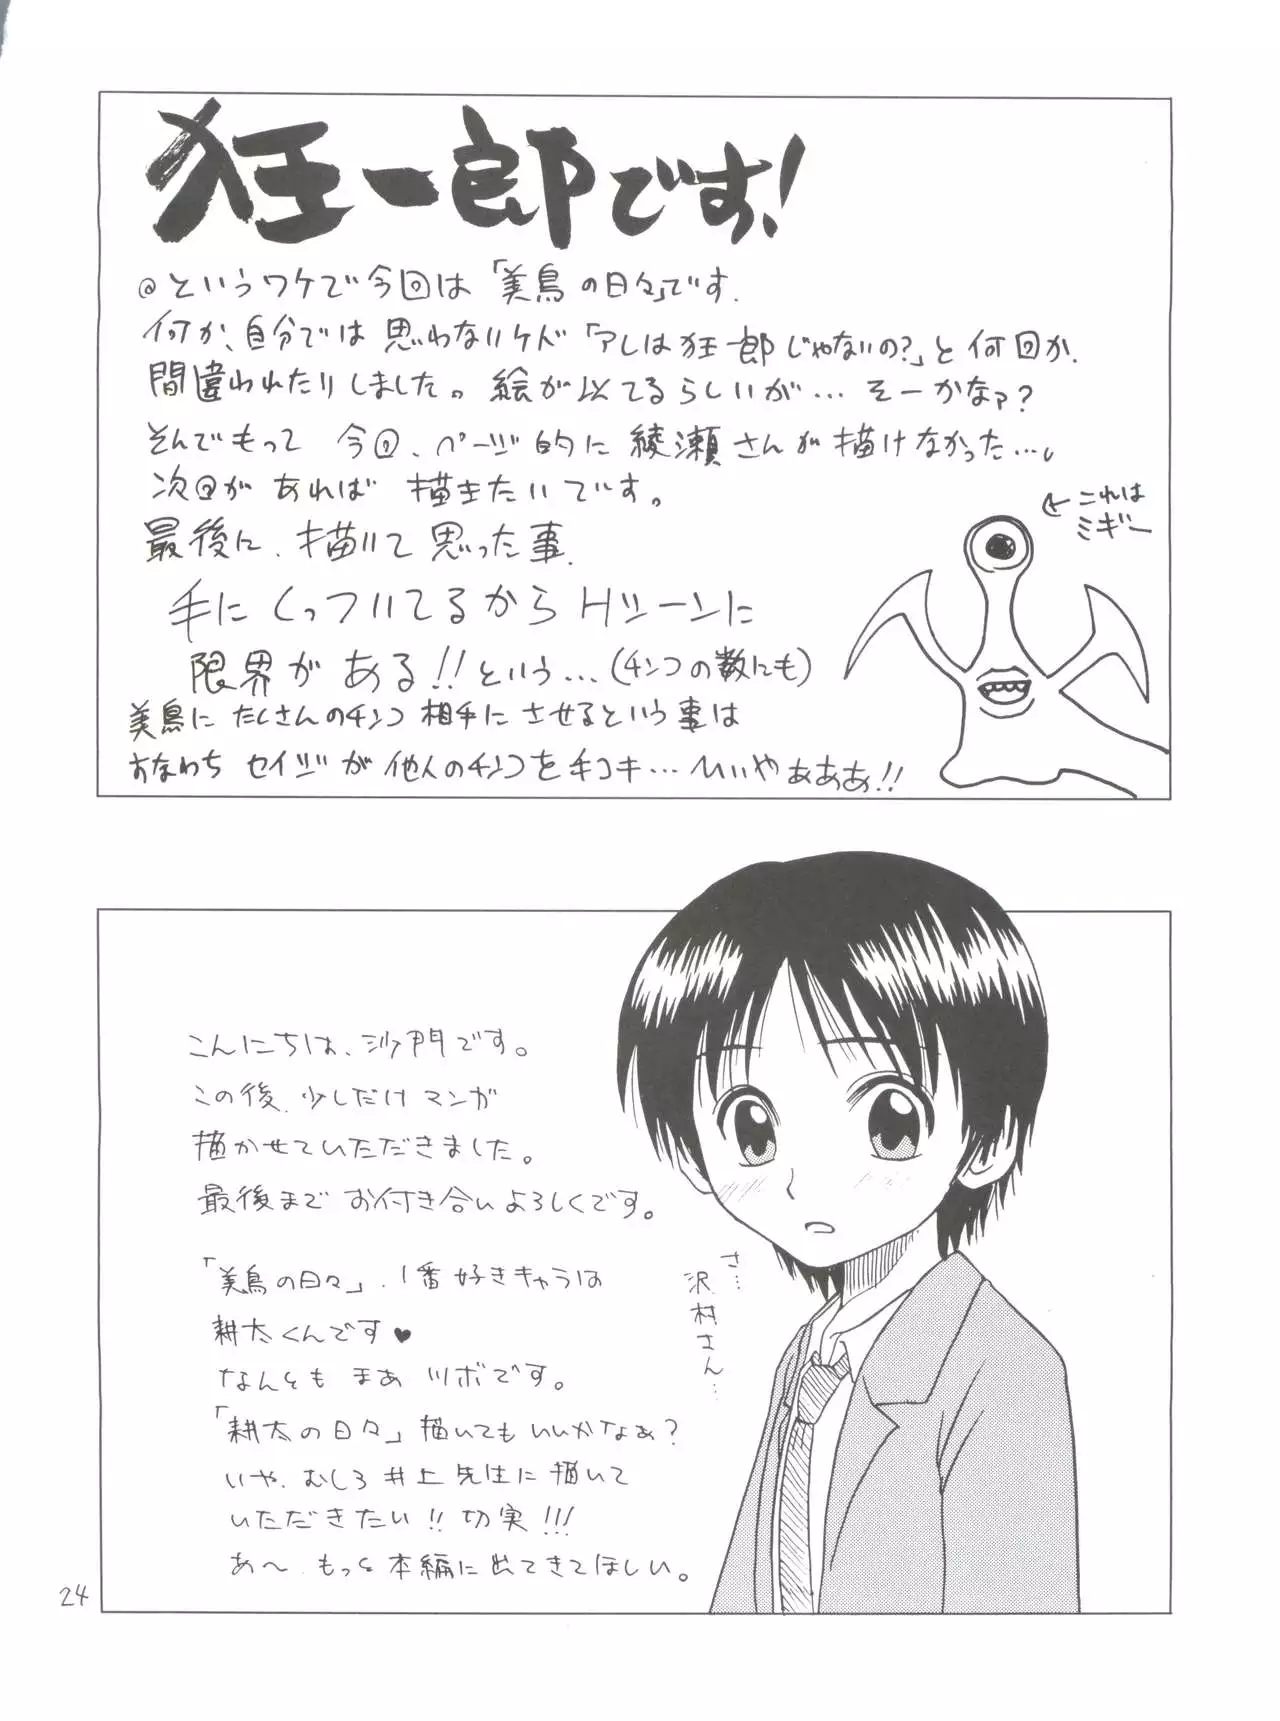 狂一郎です!
@というワケで今回は「美鳥の日々」です.
何か、自分では思わないケド「アレは狂一郎じゃないの?」と何回か.
間違われたりしました。絵が似てるらしいが…そーかなァ?
そんでもって 今回、ページ的に綾瀬さんが描けなかった…。
次回があれば描きたいです。
最後に、描いて思った事.
手にくっついてるからHシーンに
限界がある!!という…(チンコの数にも)
美鳥にたくさんのチンコ相手にさせるという事は
すなわち セイジが他人のチンコを手コキ…いいやぁぁぁ!!
←これは
ミギー
こんにちは、沙門です。
この後、少しだけマンガ
描かせていただきました。
最後まで お付き合いよろしくです。
「美鳥の日々」、1番好きキャラは
耕太くんです♥
なんともまあ ツボです。
「耕太の日々」描いてもいいかなぁ?
いや、むしろ井上先生に描いて
いただきたい!!切実!!!
あ〜 もっと本編に出てきてほしい。
さ…
沢村さん…
24